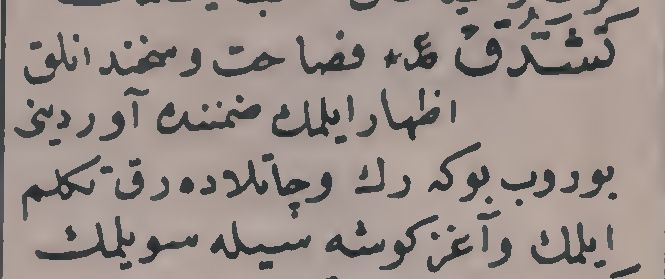 تَشَدُّق ع۰ فصاحت وسخندانلق
اظهار ايلمك ضمننده آوردينى
بوروب بوكه رك وچاتلاده رق تكلم
ايلمك وآغز كوشه سيله سويلمك